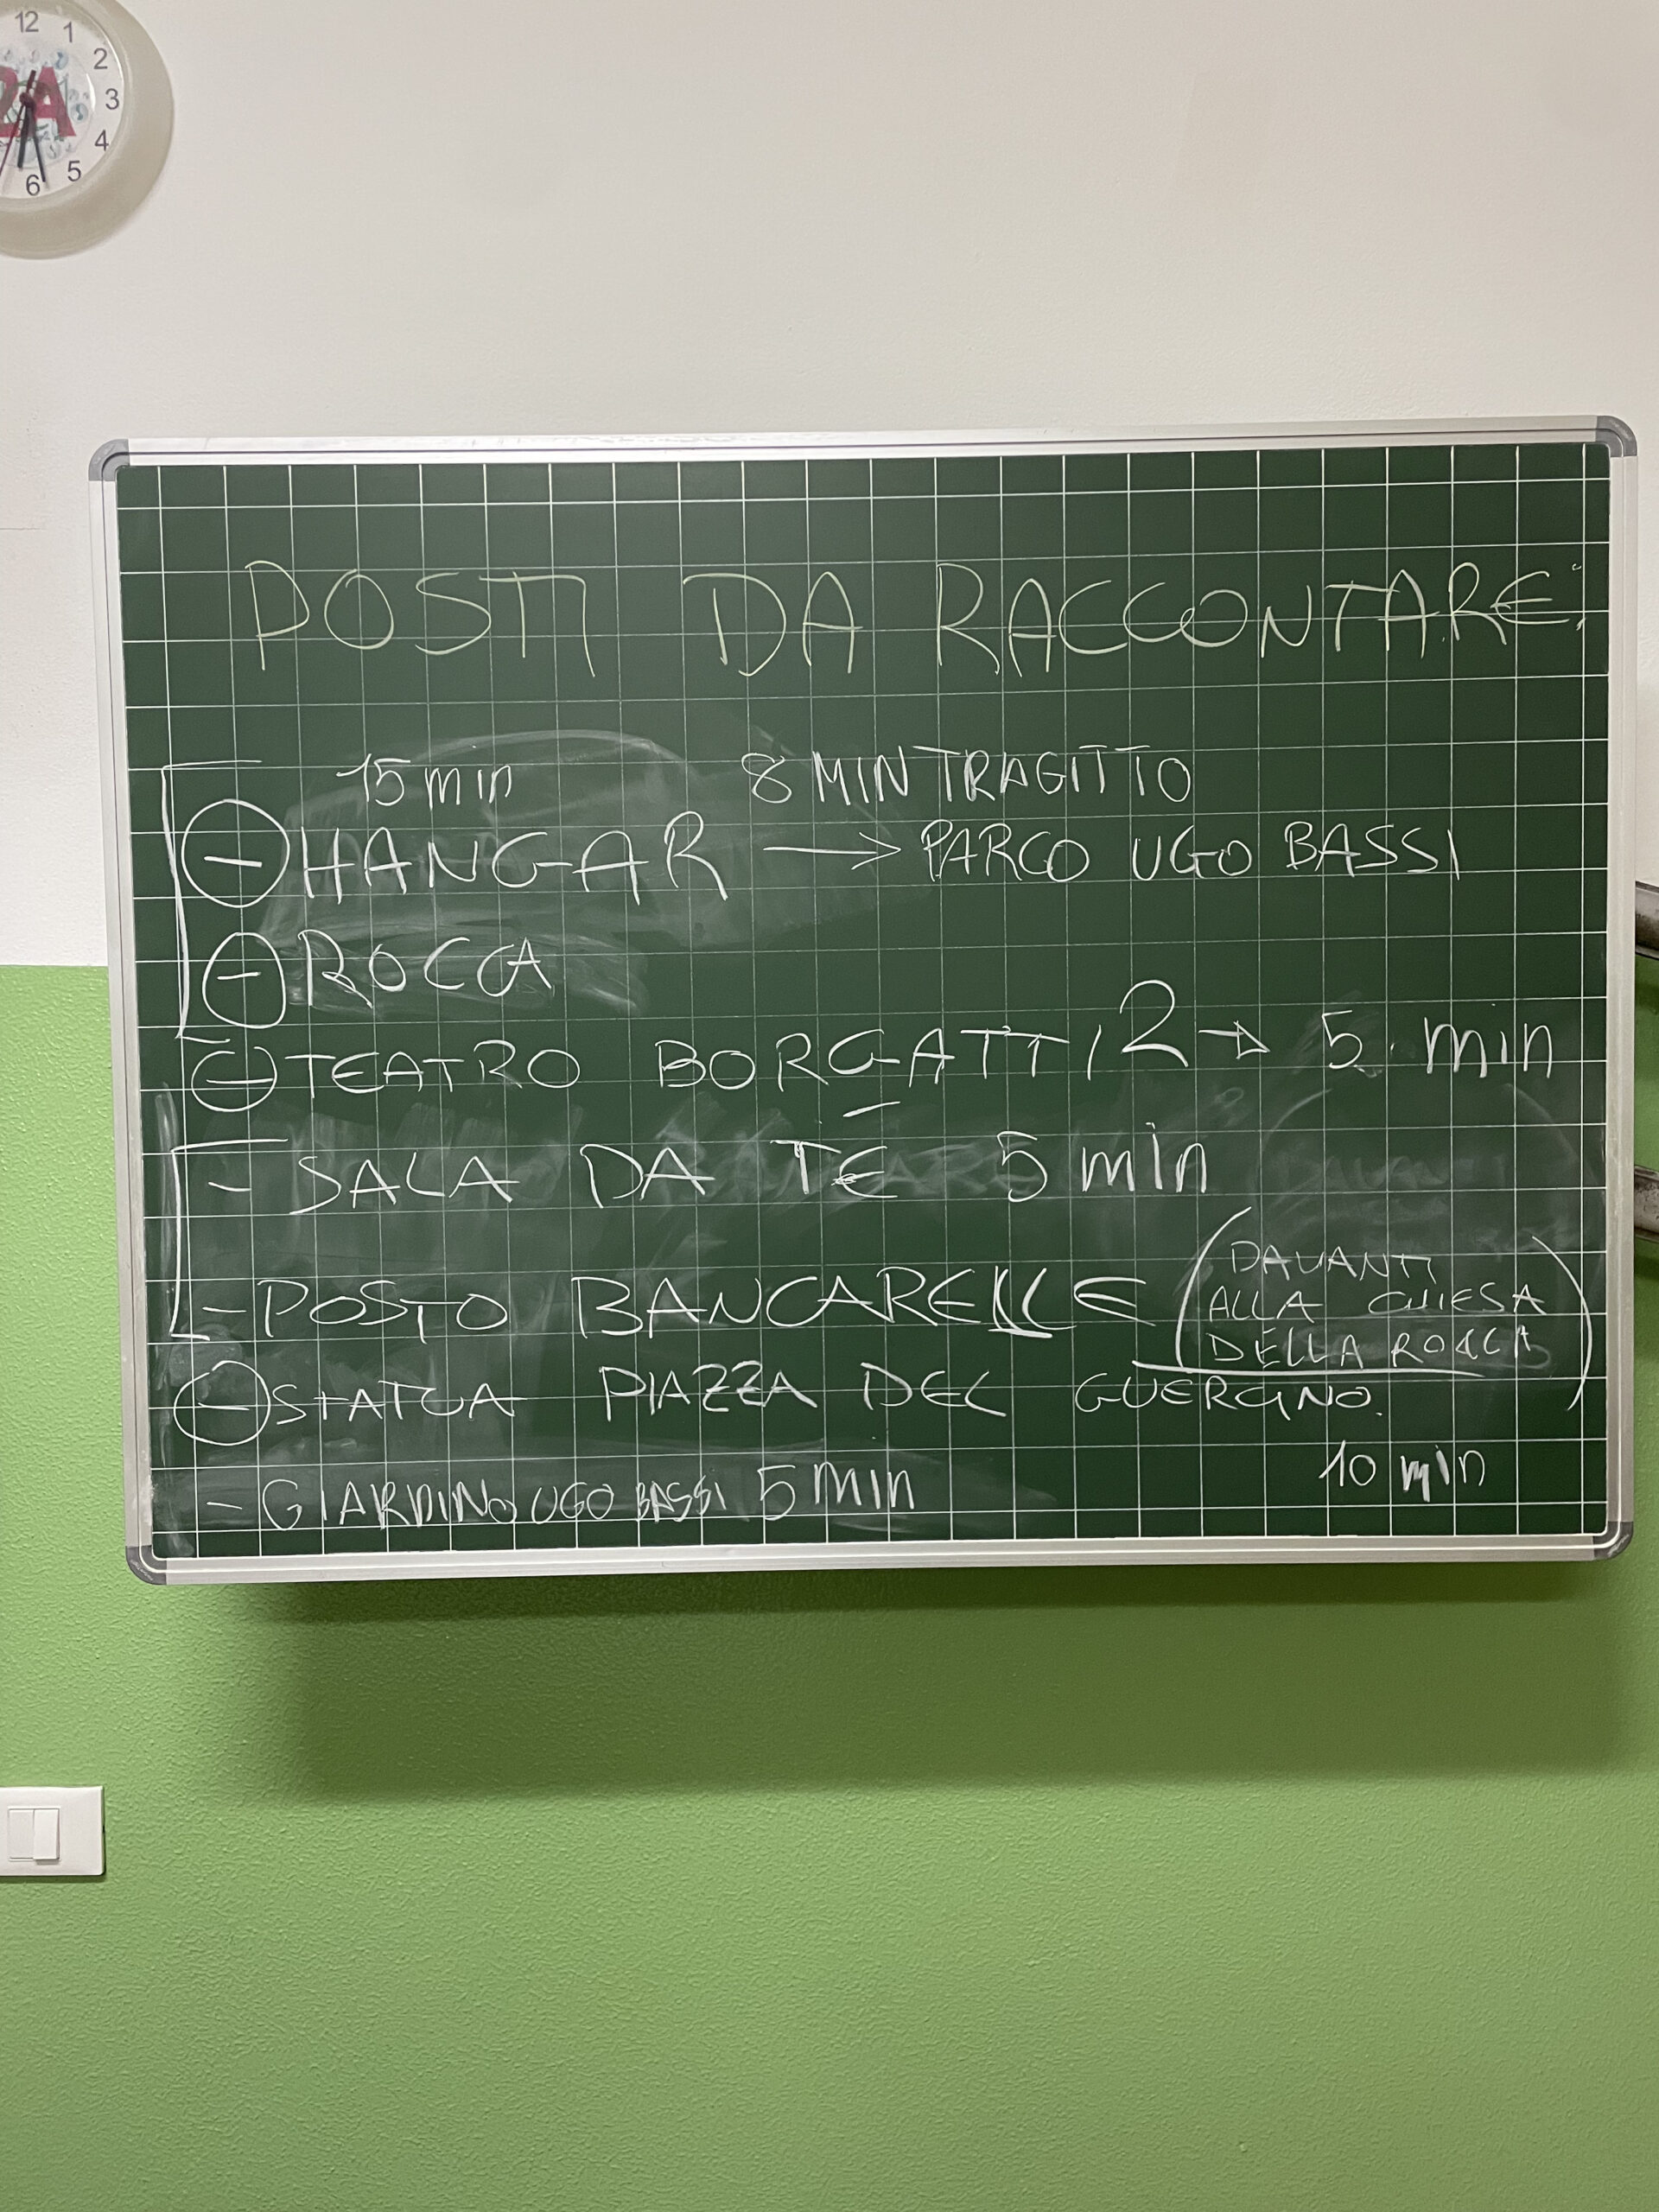 12
1
2
3
4
5
6
2A
POSTI DA RACCONTARE:
15 min 8 MIN TRAGITTO
- HANGAR → PARCO UGO BASSI
- ROCCA
- TEATRO BORGATTI 2 → 5 min
- SALA DA TE 5 min
- POSTO BANCARELLE (DAVANTI
ALLA CHIESA
DELLA ROCCA)
- STATUA PIAZZA DEL GUERCINO.
10 min
- GIARDINO UGO BASSI 5 min